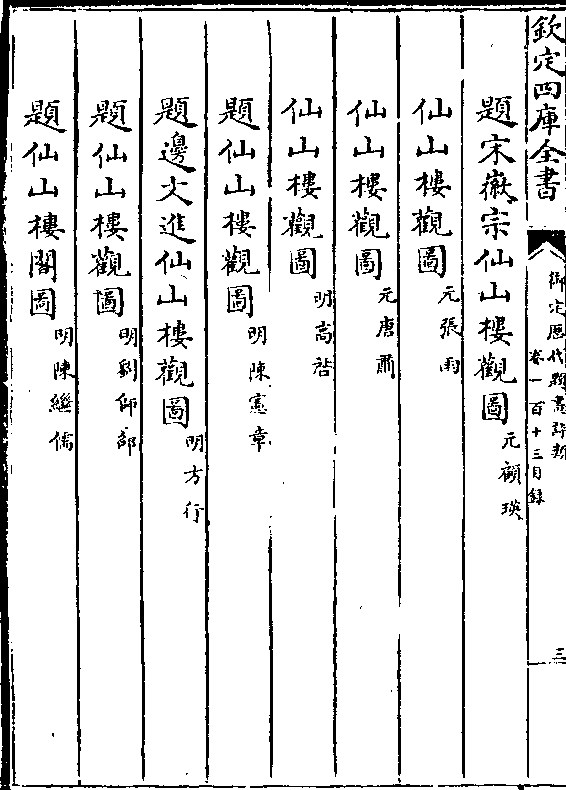 欽定四庫全書
御定歷代題畫詩類
卷一百十三目錄
三
題宋徽宗仙山樓觀圖 元顧瑛
仙山樓觀圖 元張雨
仙山樓觀圖 元唐肅
仙山樓觀圖 明高啓
題仙山樓觀圖 明陳憲章
題邊文進仙山樓觀圖 明方行
題仙山樓觀圖 明劉師邵
題仙山樓閣圖 明陳繼儒